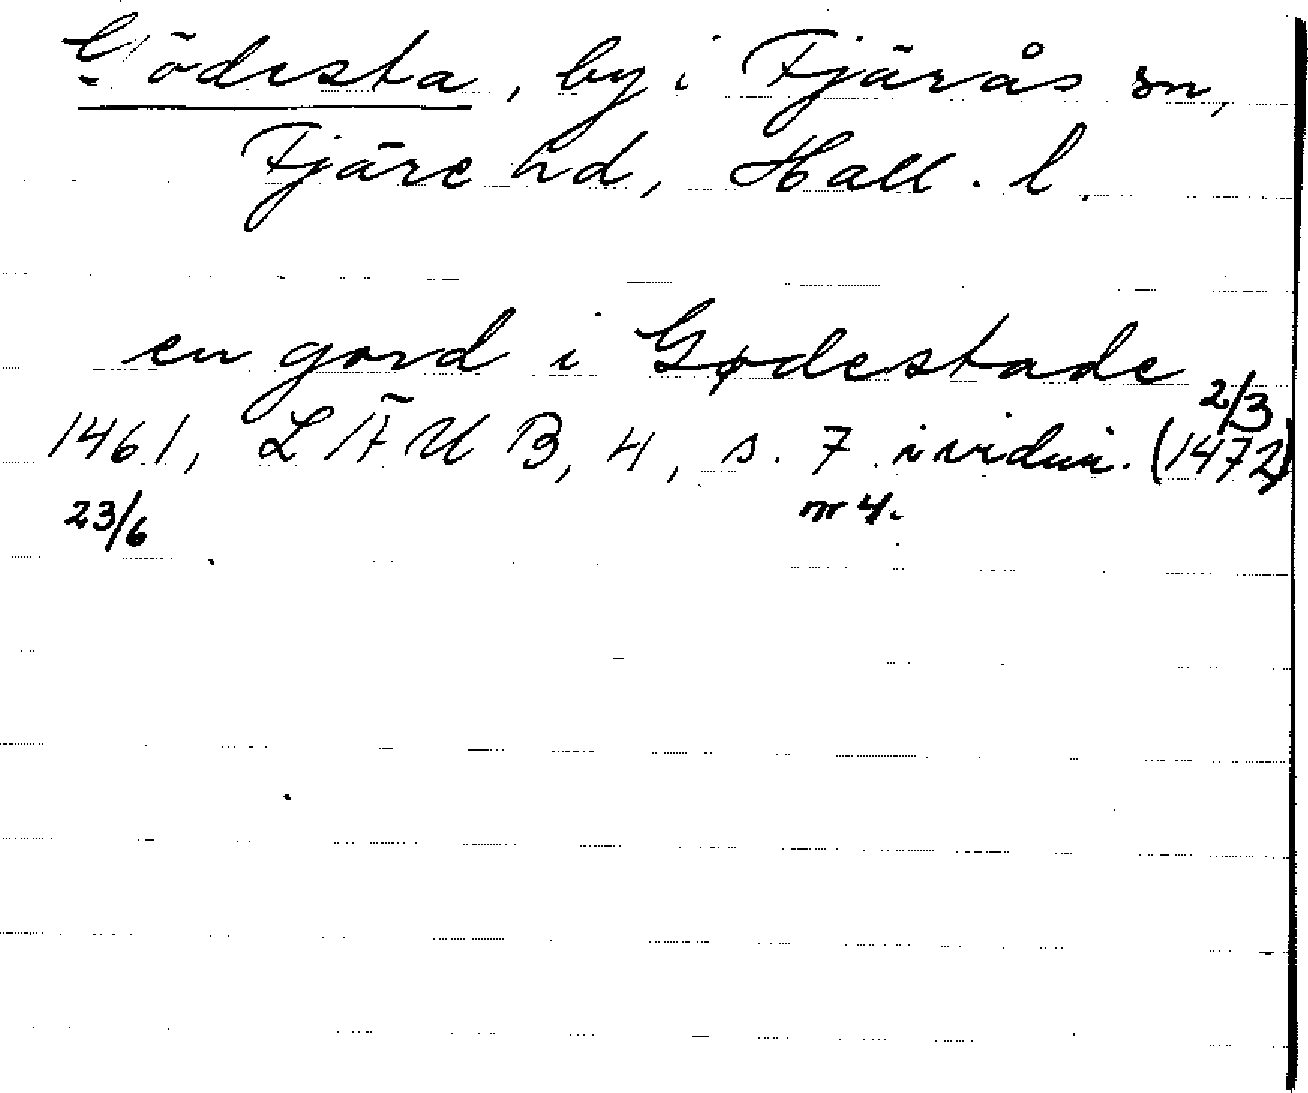 Gödesta, by i Fjärås sn,
Fjäre hd, Hall. l.
en gord i Gødestade
2/3
1461, LÄUB, 4, s. 7 i vidim. (1472)
23/6
nr 4.